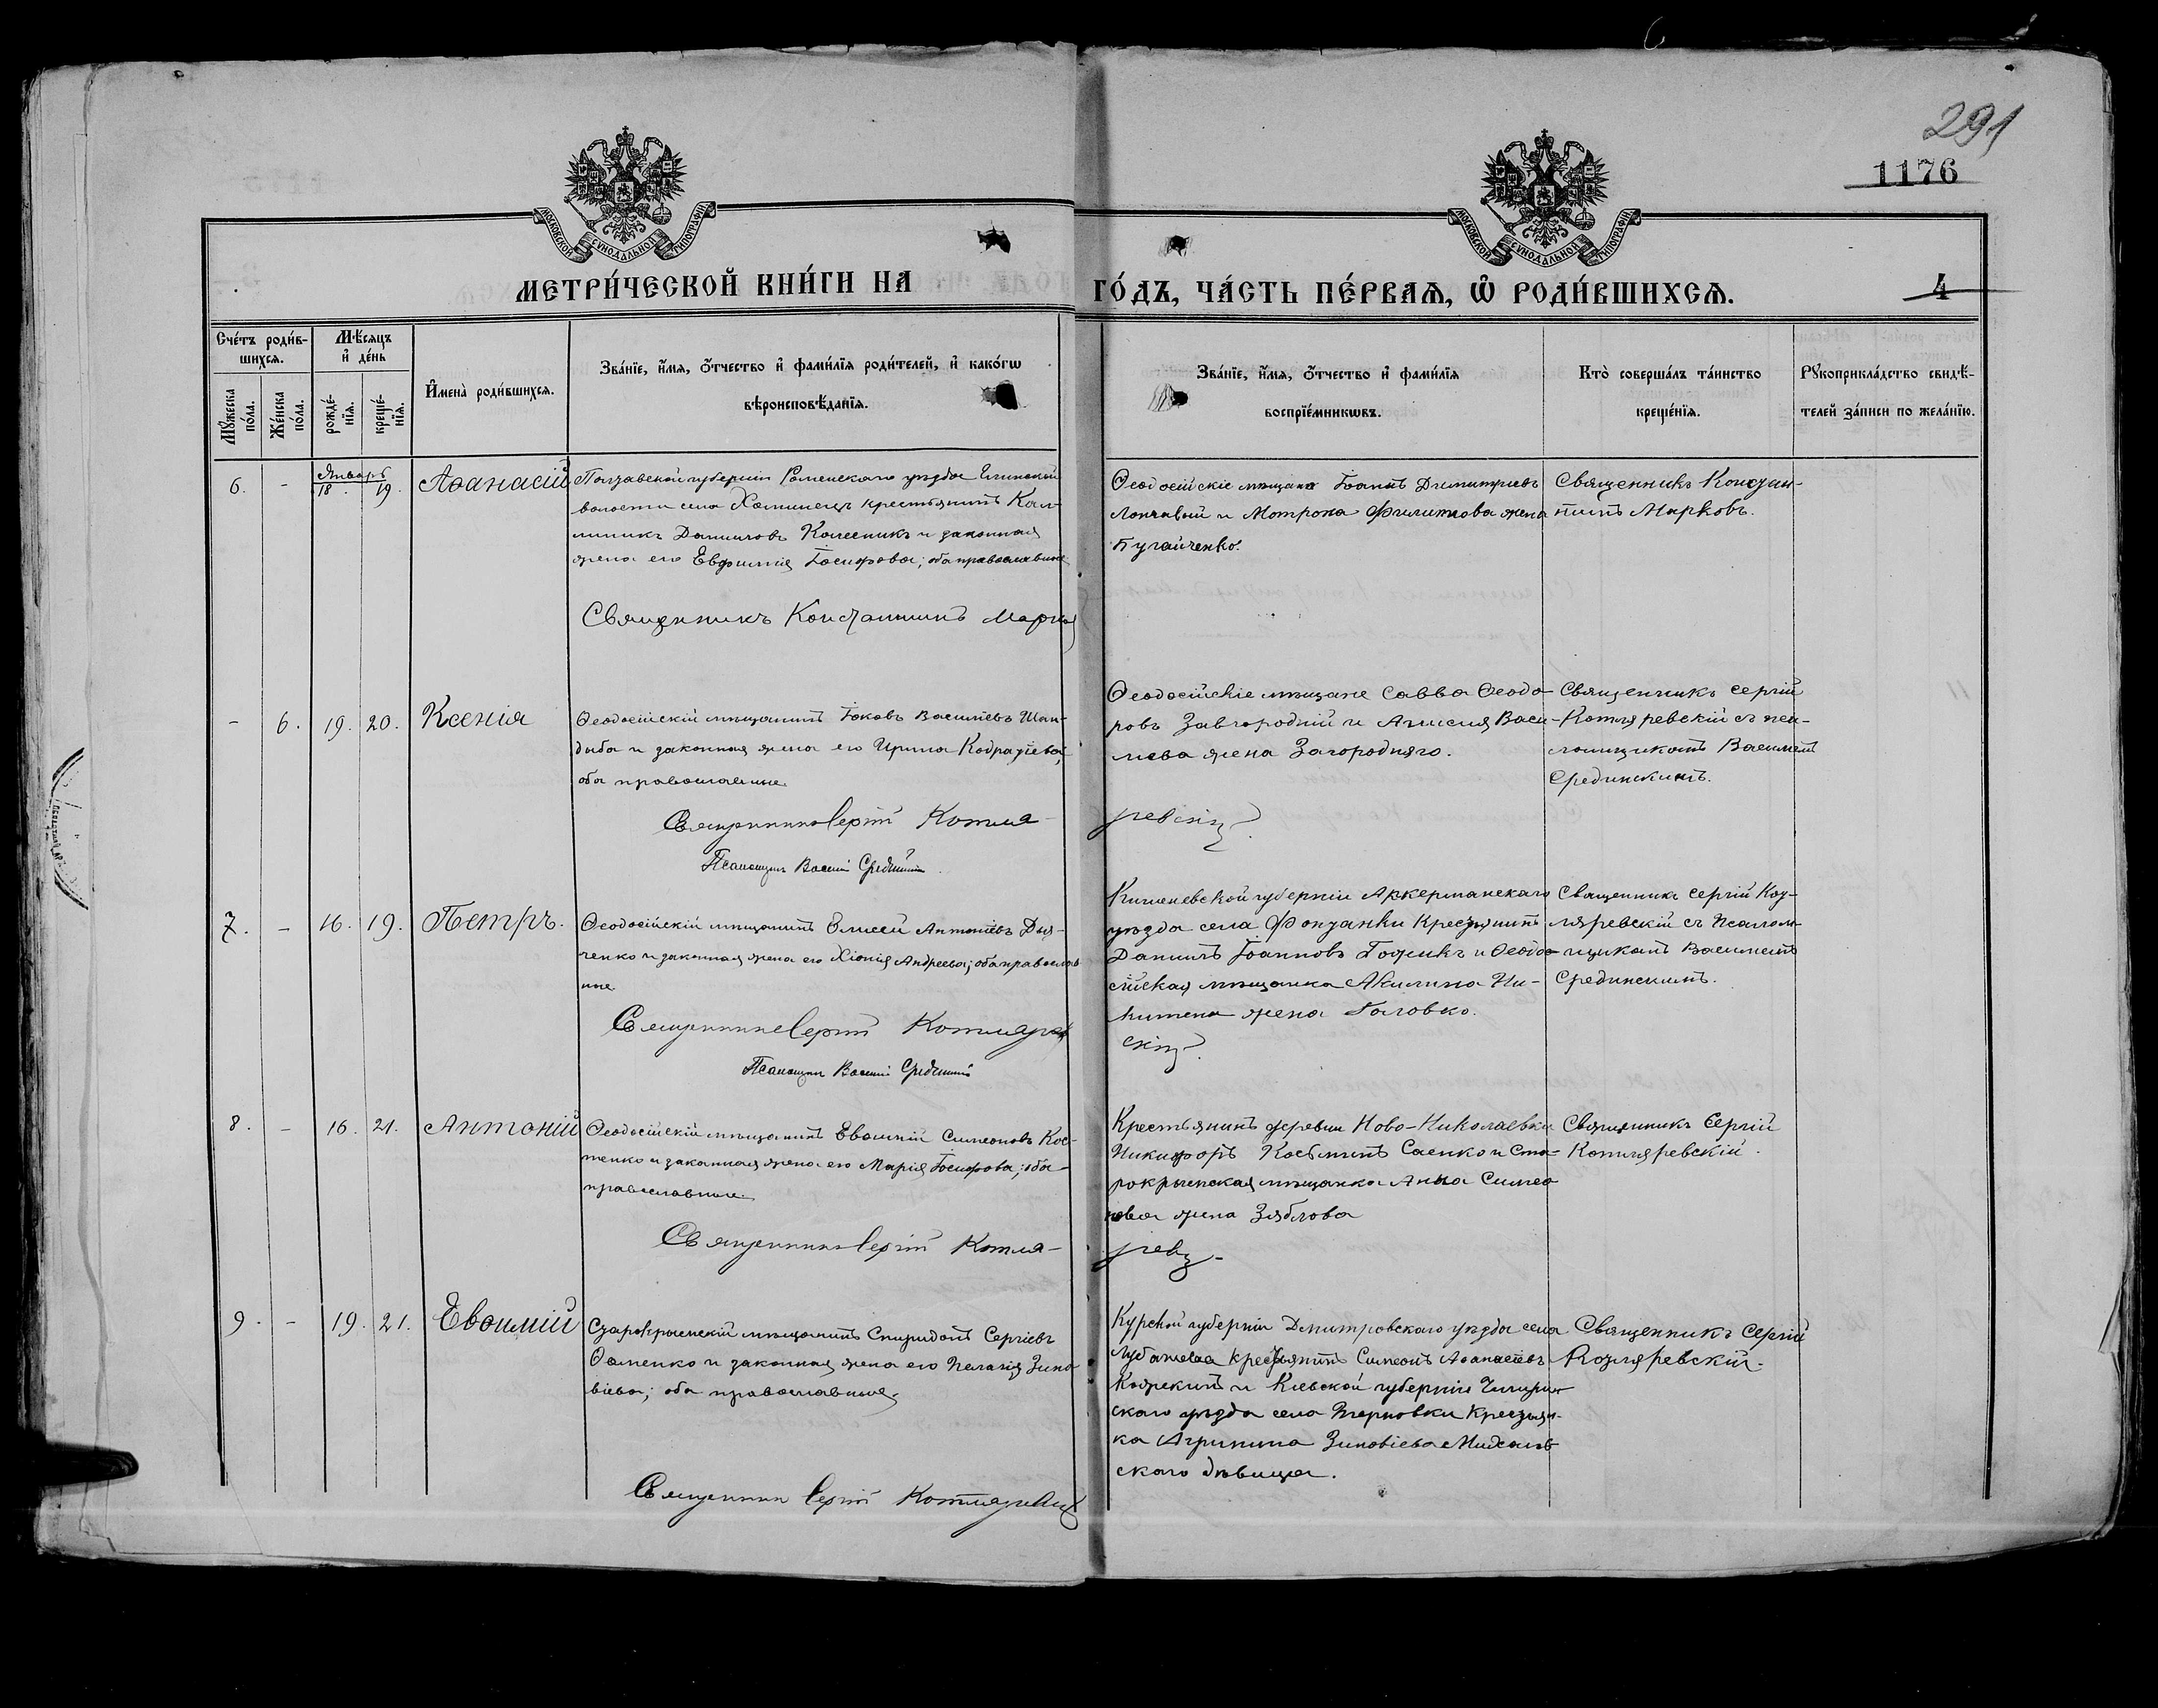 291
1176
МОСКОВСКОЙ СУНОДАЛЬНОЙ ТИПОГРАФІИ
МОСКОВСКОЙ СУНОДАЛЬНОЙ ТИПОГРАФІИ
МЕТРИ́ЧЕСКОЙ КНИ́ГИ НА ГО́ДЪ, ЧА́СТЬ ПЕ́РВАЯ, Ѡ РОДИ́ВШИХСЯ.
4
Сче́тъ роди́в-
шихся.
Мꙋ́жеска по́ла.
Же́нска по́ла.
Мѣ́сяцъ и де́нь
рожде́-нїя.
креще́-нїя.
Имена̀ роди́вшихся.
Зва́нїе, и́мя, о́тчество и фами́лїя роди́телей, и како́гѡ
вѣроисповѣ́данїя.
Зва́нїе, и́мя, о́тчество и фами́лїя
воспрїе́мникѡвъ.
Кто̀ соверша́лъ та́инство
креще́нїя.
Рꙋкоприкла́дство свидѣ́-
телей за́писи по жела́нїю.
6. - Январь 18. 19. Аѳанасій
Полтавской губерніи Роменскаго уѣзда
волости села Хоминецъ крестьянинъ Кал-
линикъ Данииловъ Колесникъ и законная
жена его Евфимія Іосифова; оба православные
Священникъ Константинъ Марковъ
Ѳеодосійскіе мѣщане Іоаннъ Димитріевъ
и Мотрона Филиппова жена
Пугайченко.
Священникъ Констан-
тинъ Марковъ.
- 6. 19. 20. Ксенія
Ѳеодосійскій мѣщанинъ Іаковъ Васильевъ Шан-
дыба и законная жена его Ирина Кодратіева,
оба православные.
Священникъ Сергій Котля-
ревскій
Псаломщикъ Василій Срединскій
Ѳеодосійскіе мѣщане Савва Ѳеодо-
ровъ Завгородній и Анисия Васи-
лева жена Загородняго.
Священникъ Сергій
Котляревскій съ пса-
ломщикомъ Василіемъ
Срединскимъ.
7. - 16. 19. Петръ.
Ѳеодосійскій мѣщанинъ Елисей Антоніевъ Дья-
ченко и законная жена его Хіонія Андреева; оба православ
ные
Священникъ Сергій Котлярев
скій
Псаломщикъ Василій Срединскій
Кишеневской губерніи Аккерманскаго
уѣзда села Фонтанки крестьянинъ
Даниилъ Іоанновъ и Ѳеодо-
сійская мѣщанка Акилина Ни-
китена жена Головко.
Священникъ Сергій Кот-
ляревскій съ Псалом-
щикомъ Василіемъ
Срединскимъ.
8. - 16. 21. Антоній
Ѳеодосійскій мѣщанинъ Евѳимій Симеоновъ Кос-
тенко и законная жена его Марія Іосифова; оба
православные
Священникъ Сергій Котля-
рев
Крестьянинъ деревни Ново-Николаевки
Никифоръ Косьминъ Саенко и Ста-
рокрымская мѣщанка Анна Симео
нова жена Зяблова
Священникъ Сергій
Котляревскій.
9. - 19. 21. Евѳимій
Старокрымскій мѣщанинъ Спиридонъ Сергіевъ
и законная жена его Пелагія Зино
віева; оба православные.
Священникъ Сергій Котляревскій
Курской губерніи Дмитровскаго уѣзда села
крестьянинъ Симеонъ Аѳанасіевъ
и Кіевской губерніи Чигирин
скаго уѣзда села Терновки крестьян-
ка Агрипина Зиновіева
скаго дѣвица.
Священникъ Сергій
Котляревскій.